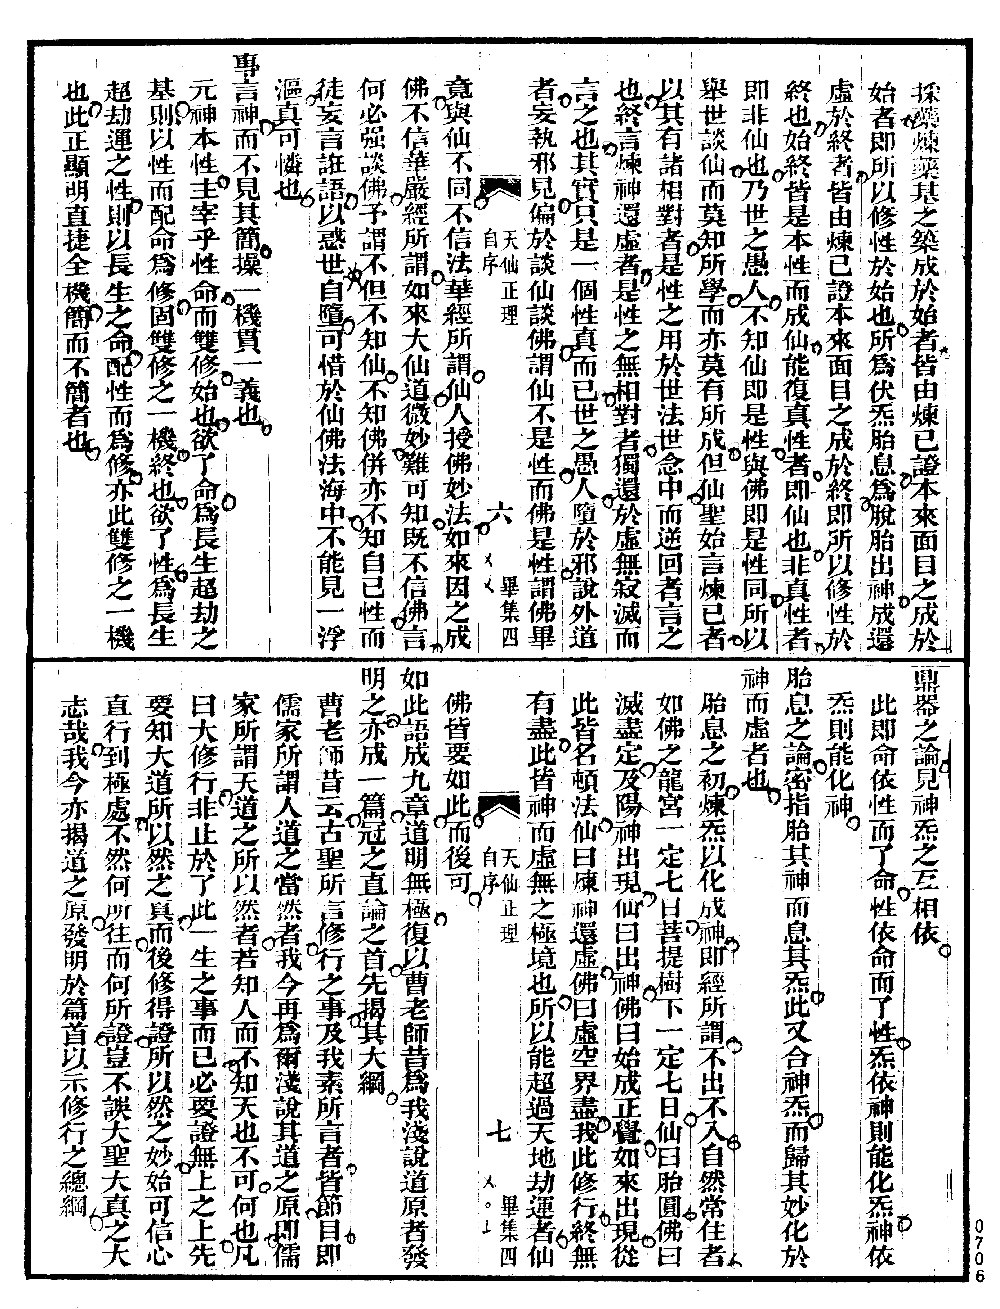 採藥煉藥基之築成於始者皆由煉已證本來面目之成於
始者即所以修性於始也所爲伏炁胎息爲脫胎出神成還
虛於終者皆由煉己證本來面目之成於終即所以修性於
終也始終皆是本性而成仙能復真性者即仙也非真性者
即非仙也乃世之愚人不知仙即是性與佛即是性同所以
舉世談仙而莫知所學而亦莫有所成但仙聖始言煉已者
以其有諸相對者是性之用於世法世念中而逆回者言之
也終言煉神還虛者是性之無相對者獨還於虛無寂滅而
言之也其實只是一個性真而已世之愚人墮於邪說外道
者妄執邪見偏於談仙談佛謂仙不是性而佛是性謂佛畢
天仙正理
自序
六
畢集四
竟與仙不同不信法華經所謂仙人授佛妙法如來因之成
佛不信華嚴經所謂如來大仙道微妙難可知既不信佛言
何必强談佛予謂不但不知仙不知佛併亦不知自已性而
徒妄言誑語以惑世自墮可惜於仙佛法海中不能見一浮
漚真可憐也
專言神而不見其簡操一機貫一義也
元神本性主宰乎性命而雙修始也欲了命爲長生超劫之
基則以性而配命爲修固雙修之一機終也欲了性爲長生
超劫運之性則以長生之命配性而爲修亦此雙修之一機
也此正顯明直捷全機簡而不簡者也
鼎器之論見神炁之互相依
此即命依性而了命性依命而了性炁依神則能化炁神依
炁則能化神
胎息之論密指胎其神而息其炁此又合神炁而歸其妙化於
神而虛者也
胎息之初煉炁以化成神即經所謂不出不入自然常住者
如佛之龍宮一定七日菩提樹下一定七日仙曰胎圓佛曰
滅盡定及陽神出現仙曰出神佛曰始成正覺如來出現從
此皆名頓法仙曰煉神還虛佛曰虛空界盡我此修行終無
有盡此皆神而虛無之極境也所以能超過天地劫運者仙
天仙正理
自序
七
畢集四
佛皆要如此而後可
如此語成九章道明無極復以曹老師昔爲我淺說道原者發
明之亦成一篇冠之直論之首先揭其大綱
曹老師昔云古聖所言修行之事及我素所言者皆節目即
儒家所謂人道之當然者我今再爲爾淺說其道之原即儒
家所謂天道之所以然者若知人而不知天也不可何也凡
曰大修行非止於了此一生之事而已必要證無上之上先
要知大道所以然之真而後修得證所以然之妙始可信心
直行到極處不然何所往而何所證豈不誤大聖大真之大
志哉我今亦揭道之原發明於篇首以示修行之總綱
0706